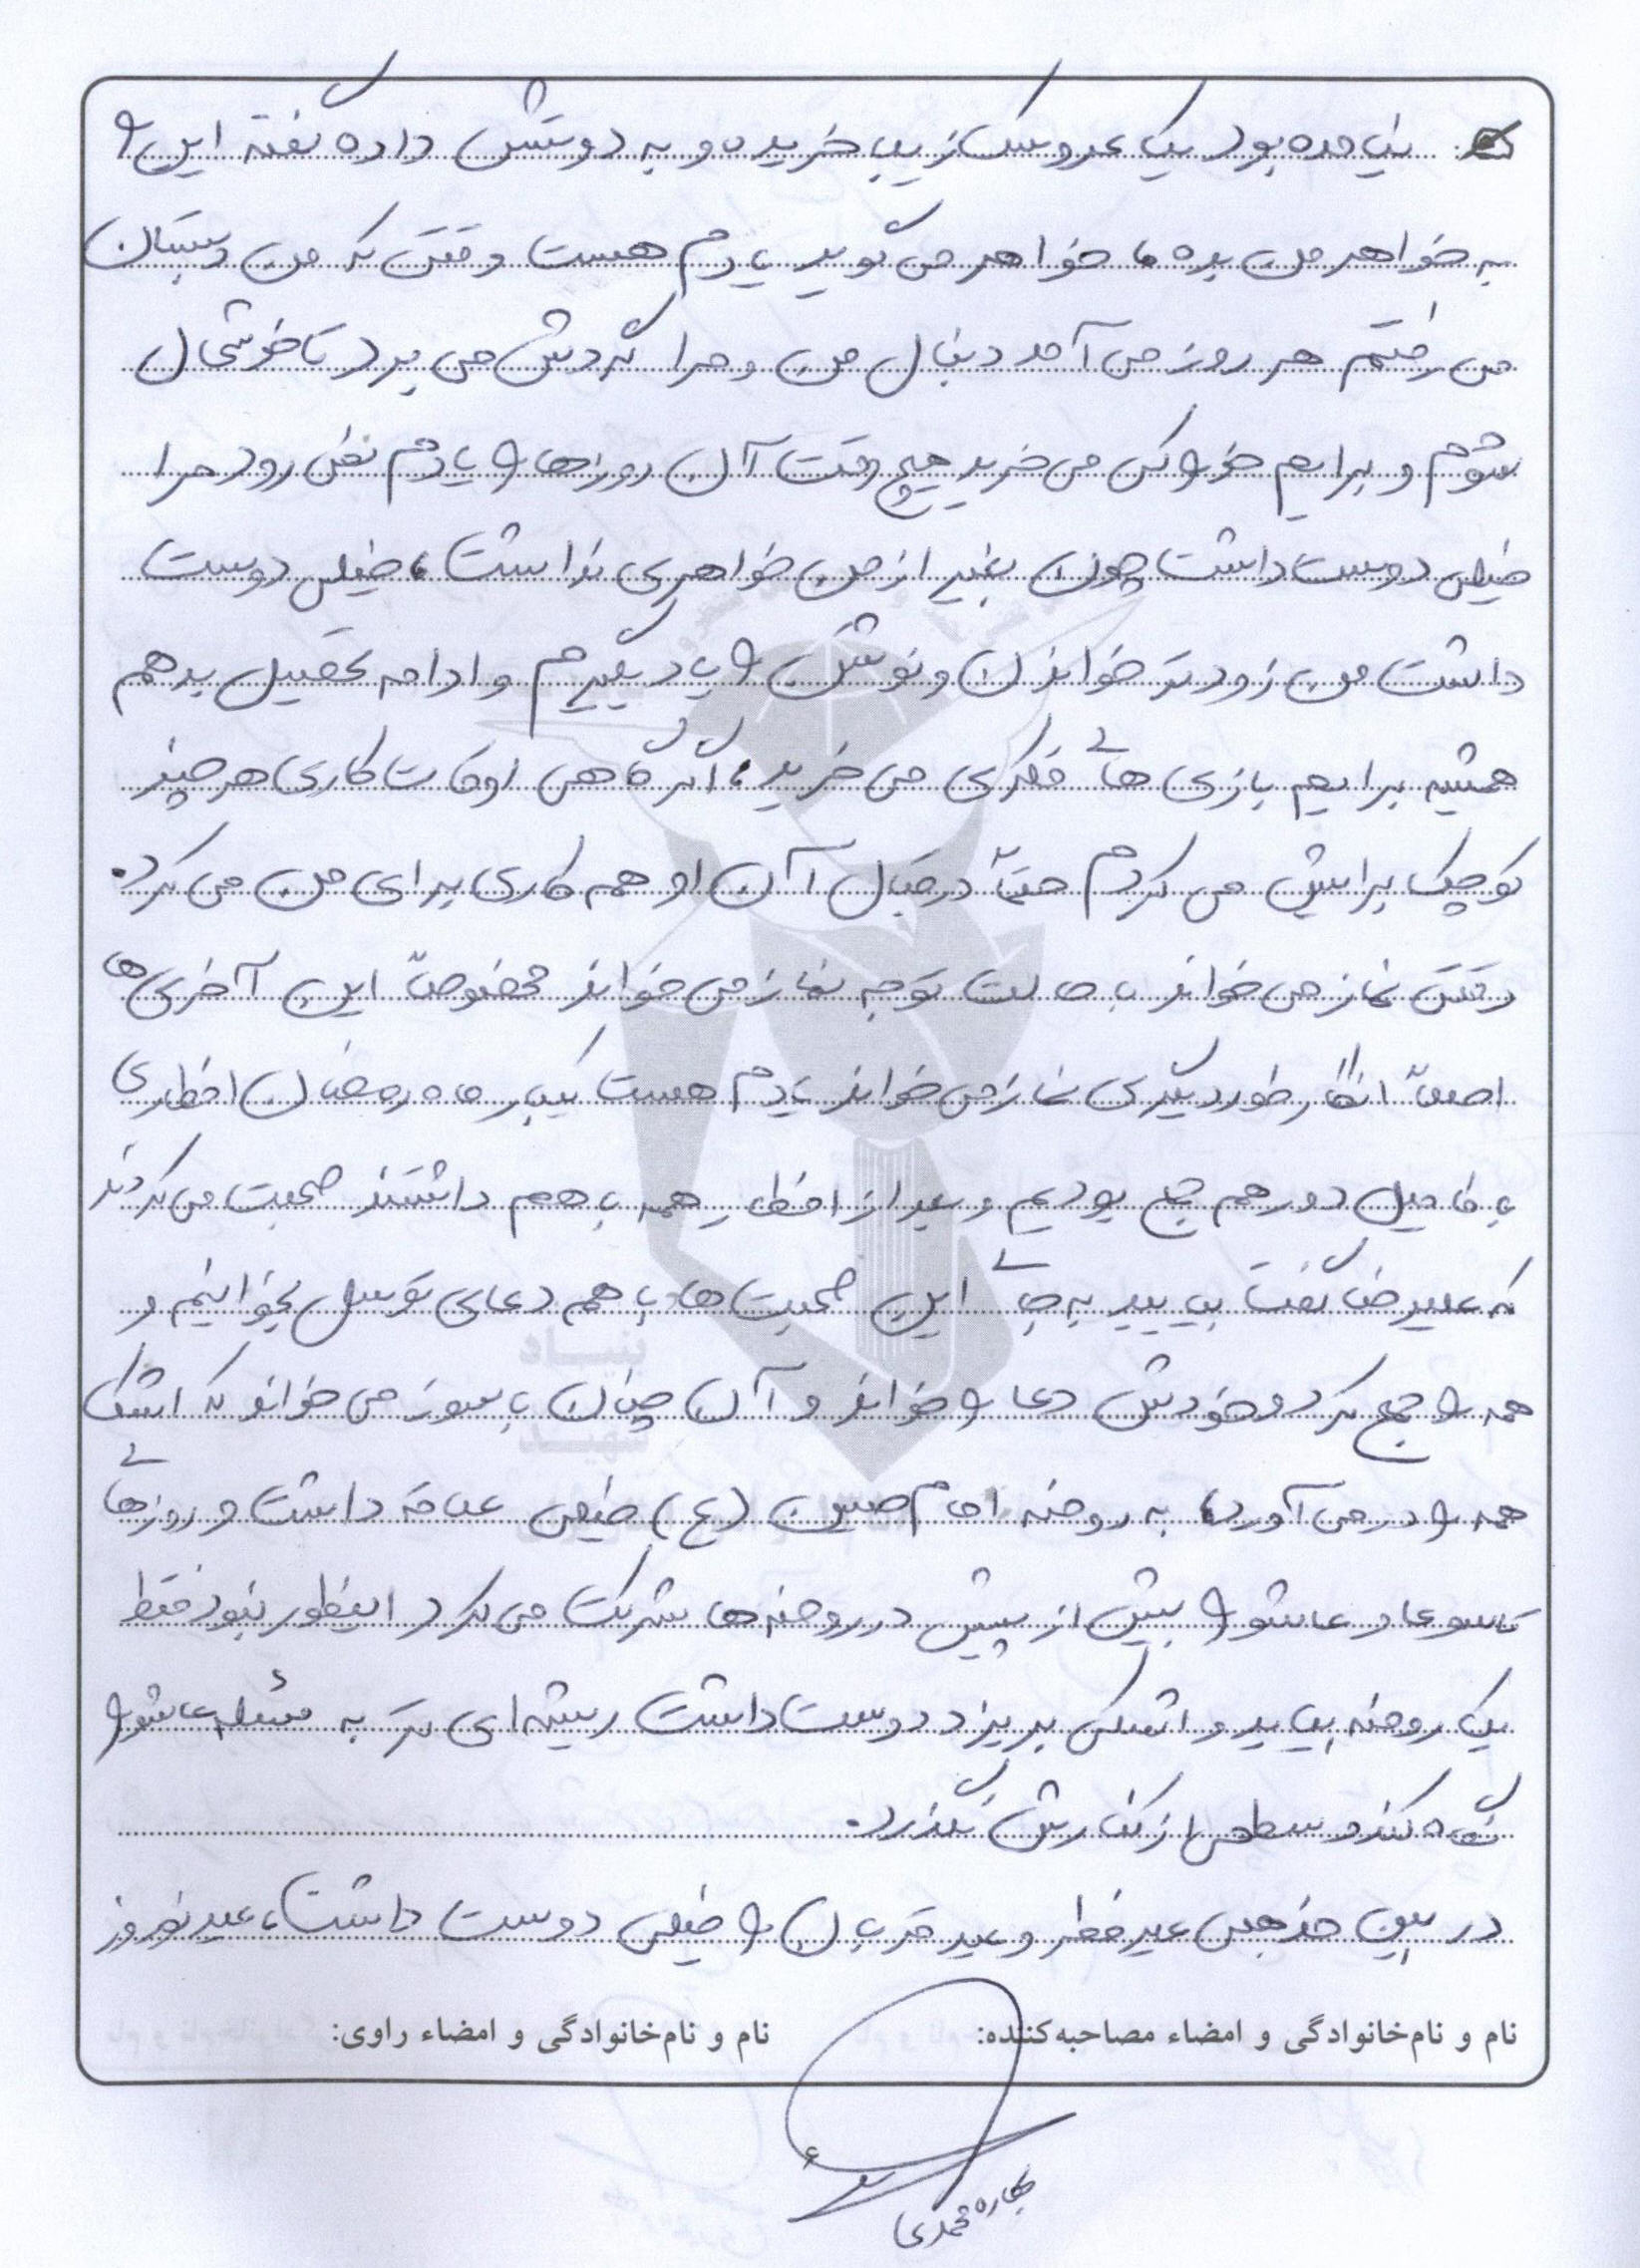 نیامده بود یک عروسک زیبا خریده و به دوستش داده گفته این را
به خواهر من بده، خواهر می گوید یادم هست وقتی که من دبستان
می رفتم هر روز می آمد دنبال من و مرا گردش می برد تا خوشحال
شوم و برایم خوراکی می خرید هیچ وقت آن روزها را یادم نمی رود مرا
خیلی دوست داشت چون بغیر از من خواهری نداشت، خیلی دوست
داشت من زودتر خواندن و نوشتن را یاد بگیرم و ادامه تحصیل بدهم
همیشه برایم بازی های فکری می خرید، اگر گاهی اوقات کاری هر چند
کوچک برایش می کردم حتماً در قبال آن او هم کاری برای من می کرد.
وقتی نماز می خواند با حالت توجه نماز می خواند مخصوصاً این آخری ها
اصلاً انگار طور دیگری نماز می خواند یادم هست یکبار ماه رمضان افطاری
با فامیل دور هم جمع بودیم و بعد از افطار همه با هم داشتند صحبت می کردند
که علیرضا گفت بیایید به جای این صحبت ها با هم دعای توسل بخوانیم و
همه را جمع کرد و خودش دعا را خواند و آن چنان با سوز می خواند که اشک
همه را در می آورد، به روضه امام حسین (ع) خیلی علاقه داشت و روزهای
تاسوعا و عاشورا بیش از پیش در روضه ها شرکت می کرد اینطور نبود فقط
یک روضه بیاید و اشکی بریزد دوست داشت ریشه ای تر به مسئله عاشورا
نگاه کند و سطحی از کنارش نگذرد.
در بین مذهبی عید فطر و عید قربان را خیلی دوست داشت، عید نوروز
نام و نام‌خانوادگی و امضاء مصاحبه‌کننده: نام و نام‌خانوادگی و امضاء راوی:
بهاره محمدی
بنیاد
شهید